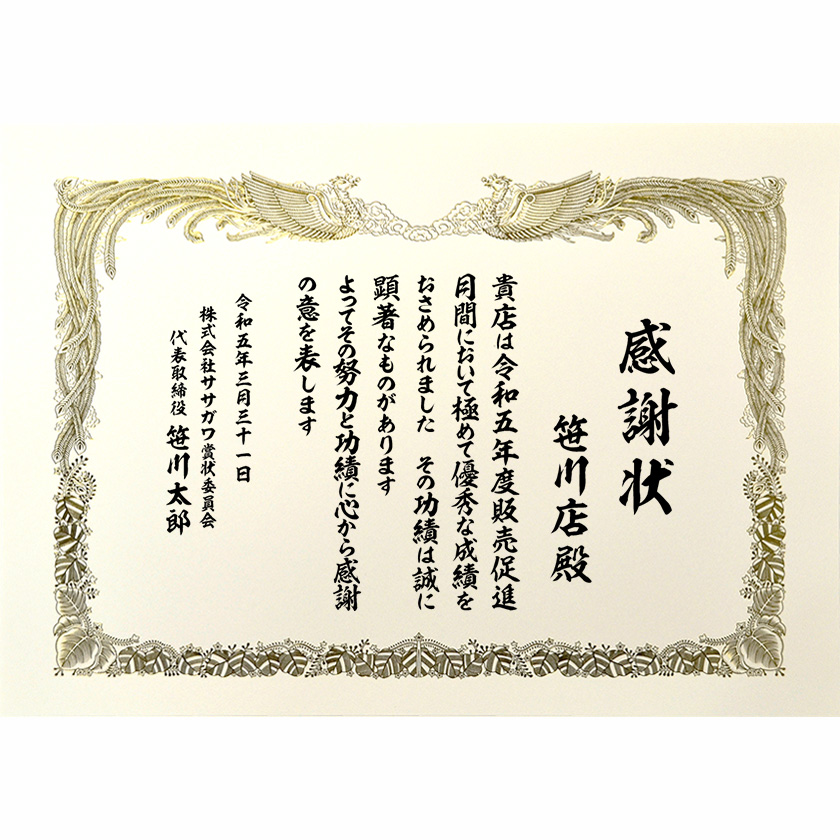 感謝状
笹川店殿
貴店は令和五年度販売促進
月間において極めて優秀な成績を
おさめられました　その功績は誠に
顕著なものがあります
よってその努力と功績に心から感謝
の意を表します
令和五年三月三十一日
株式会社ササガワ賞状委員会
代表取締役　笹川太郎